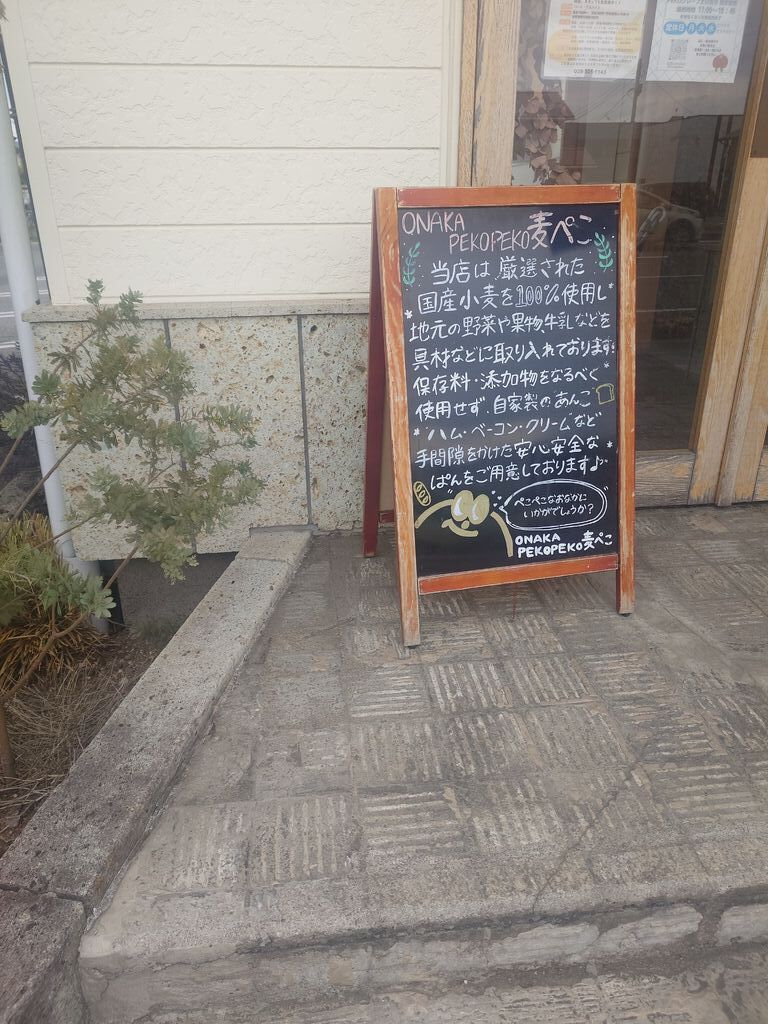 11:00~18:
定休日
ONAKA
PEKOPEKO麦ぺこ
当店は厳選された
国産小麦を100%使用し
地元の野菜や果物牛乳などを
具材などに取り入れております!
保存料・添加物をなるべく
使用せず.自家製のあんこ
ハム・ベーコン・クリームなど
手間隙をかけた安心安全な
ぱんをご用意しております♪
ぺこぺこなおなかに
いかがでしょうか?
ONAKA
PEKOPEKO麦ぺこ